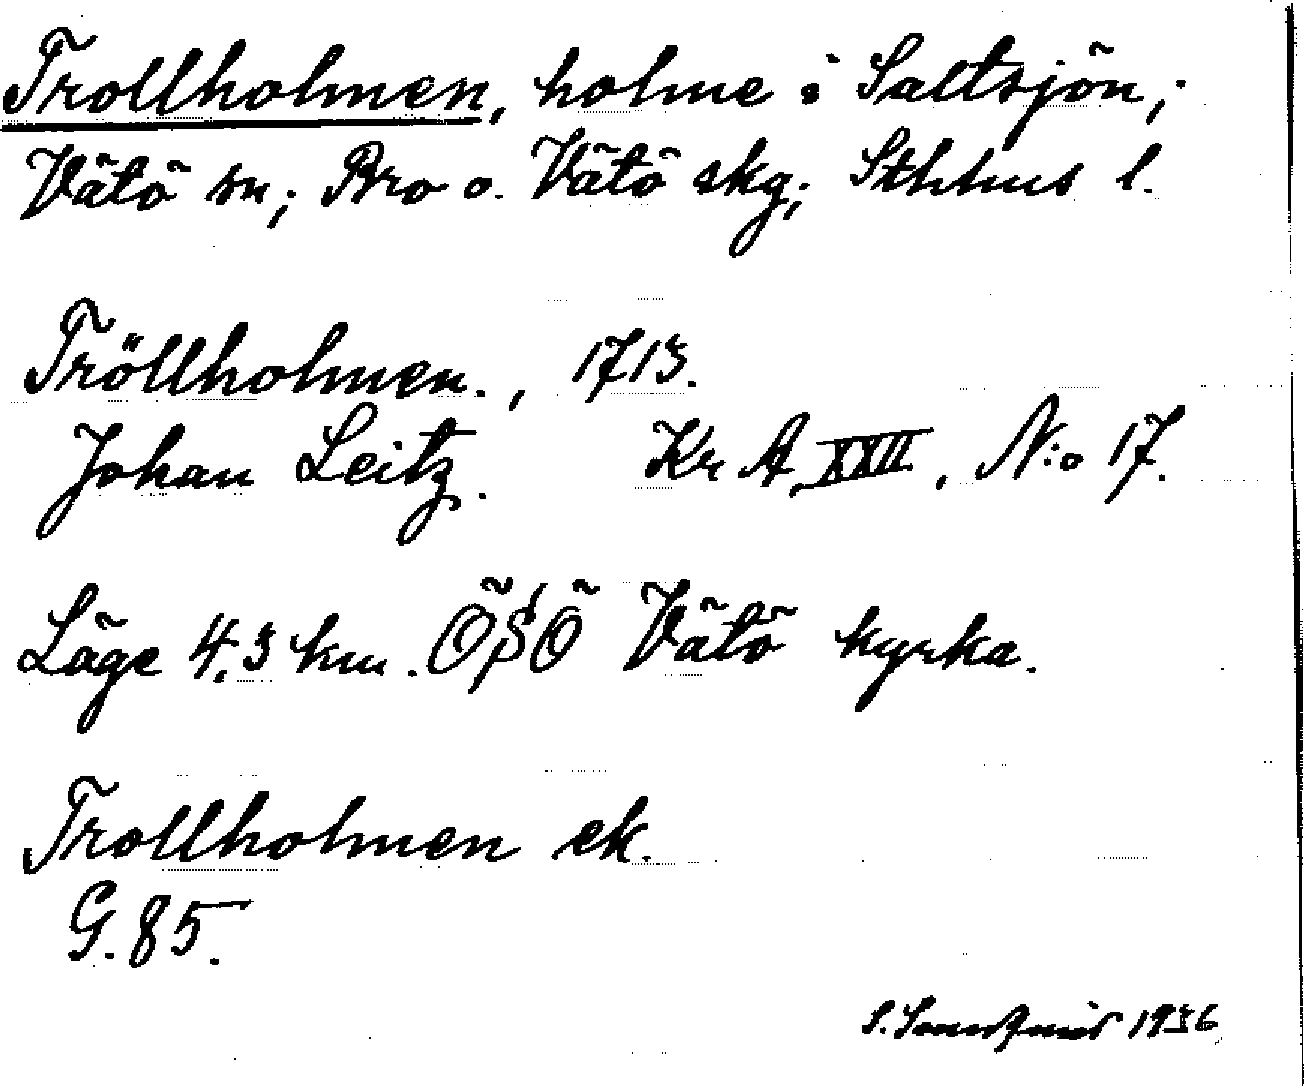 Trollholmen, holme i Saltsjön;
Vätö sn; Bro o. Vätö skg; Sthlms l.
Tröllholmen., 1713.
Johan Leitz. Kr A, XXII, N:o 17.
Läge 4,3 km. ÖSÖ Vätö kyrka.
Trollholmen ek.
G. 85.
S. 1936